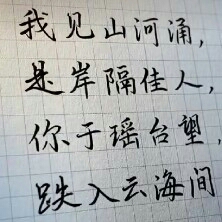 我见山河涌,
是岸隔佳人,
你于瑶台望,
跌入云海间